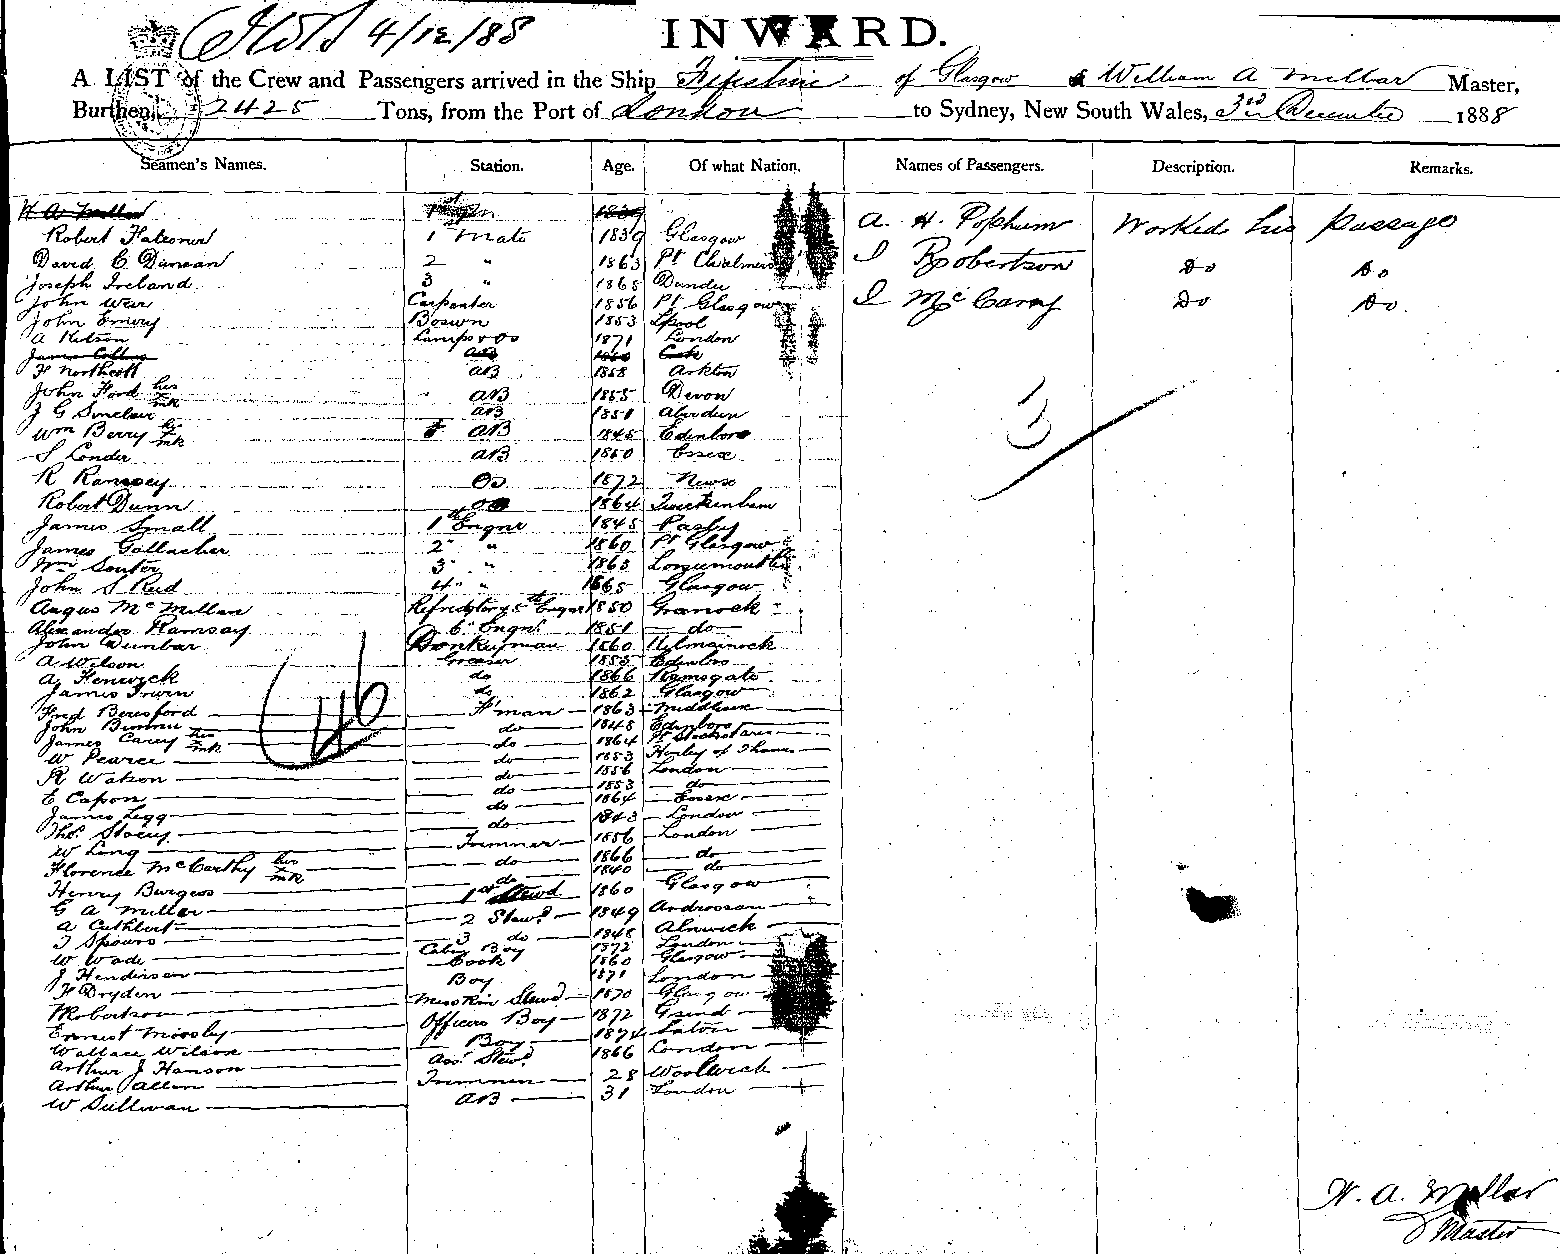 4/12/88
INWARD.
A LIST of the Crew and Passengers arrived in the Ship of Glasgow William A Millar Master,
Burthen 2425 Tons, from the Port of London to Sydney, New South Wales, 3rd December 1888
Seamen's Names. Station. Age. Of what Nation. Names of Passengers. Description. Remarks.
W A Millar
Robert Falconer 1 Mate 1839 Glasgow
A. H. Popham Worked his passage
David C Duncan 2 " 1863 Pt Chalmers
I Robertson Do Do
Joseph Ireland 3 " 1865 Dundee
John Weir Carpenter 1856 Pt Glasgow
I McCarey Do Do.
John Emery Boswn 1853 Lpool
A Kitson Lamps & OS 1871 London
James Collins AB Cork
F Northcott AB 1858
John Ford his mk AB 1855 Devon
J G Sinclair AB 1851 Aberdeen
Wm Berry his mk AB 1845 Edinboro
3
S Londer AB 1850 Essex
R Ramsey OS 1872
Robert Dunn OS 1864 Twickenham
James Small 1st Engnr 1845 Pasley
James Gallacher 2" " 1860 Pt Glasgow
Wm Souter 3" " 1863
John S Reid 4" " 1865 Glasgow
Angus McMillan 5th Engnr 1850 Granock
Alexander Ramsay 6" Engnr 1851 do
John Dunbar Donkeyman 1860 Kilmarnock
A Wilson Greaser 1855 Edinboro
A Fenwick do 1866 Ramsgate
James Irwin do 1862 Glasgow
46
Fred Beresford F'man 1863 Middlesex
John Binnie do 1848 Edinboro
James Carey his mk do 1864
W Pearce do 1853 of Thames
R Watson do 1856 London
E Capon do 1853 do
James Legg do 1864 Essex
Thos Stacey do 1843 London
W Long Trimmer 1856 London
Florence McCarthy his mk do 1866 do
Henry Burgess do 1840 do
G A Miller 1st Stewd 1860 Glasgow
A Cuthbert 2 Stewd 1849 Androssan
T Spours 3 do 1848 Alnwick
W Wade Cabin Boy 1872 London
J Henderson Cook 1860 Glasgow
F Dryden Boy 1871 London
Robertson Messrm Stewd 1870 Glasgow
Ernest Moosley Officers Boy 1872
Wallace Wilson Boy 1874
Arthur J Hanson Asst Stewd 1866 London
Arthur Allen Trimmer 28 Woolwich
W Sullivan AB 31 London
W. A. Millar
Master